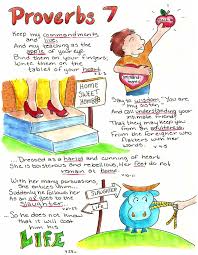 Proverbs 7
Keep my commandments
and live,
And my teaching as the
apple of your eye.
Bind them on your fingers;
Write them on the
tablet of your heart.
HOME
SWEET
HOME
Say to wisdom, "You are
my sister,"
And call understanding your
intimate friend;
That they may keep you
from an adulteress,
From the foreigner who
flatters with her
words.
...Dressed as a harlot and cunning of heart
She is boisterous and rebellious, Her feet do not
remain at home.
With her many persuasions
She entices him...
Suddenly he follows her
As an ox goes to the
slaughter
SLAUGHTER
...So he does not know
that it will cost
him his
LIFE